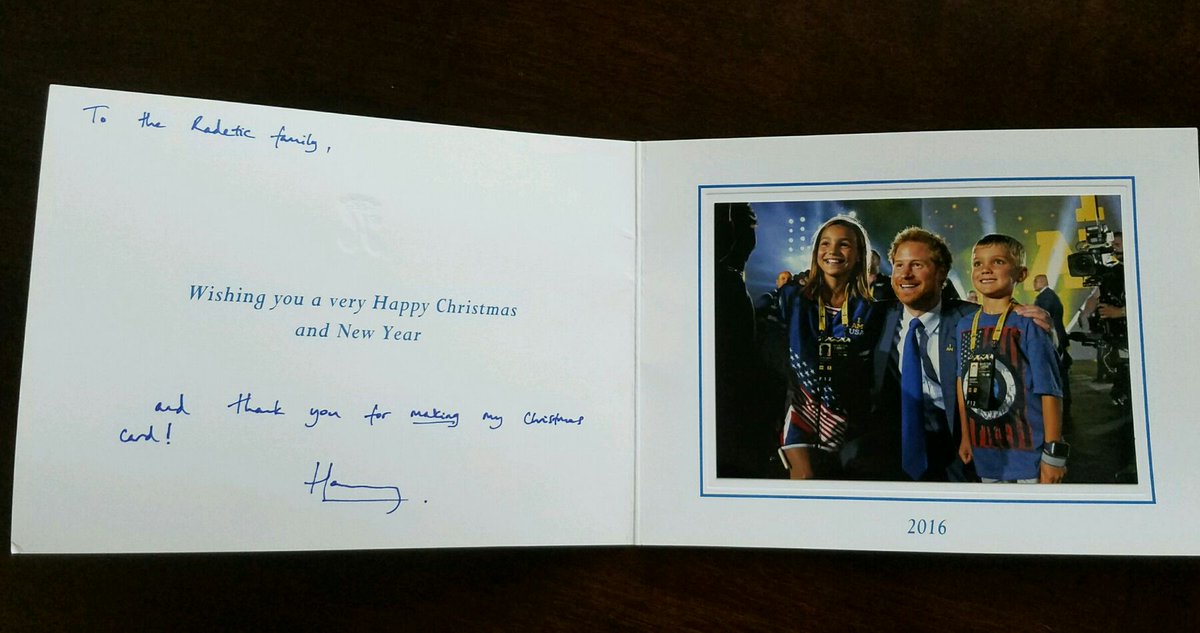 To the Radetic family,
Wishing you a very Happy Christmas
and New Year
and thank you for making my Christmas
card!
Harry.
I
AM
USA
2016